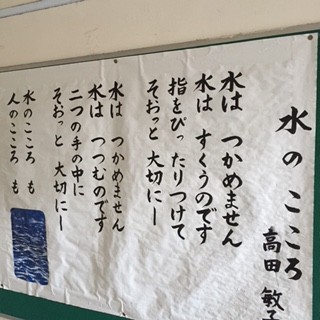 水の こころ
高田 敏子
水は つかめません
水は すくうのです
指をぴったりつけて
そおっと 大切にー
水は つかめません
水は つつむのです
二つの手の中に
そおっと 大切にー
水のこころ も
人のこころ も